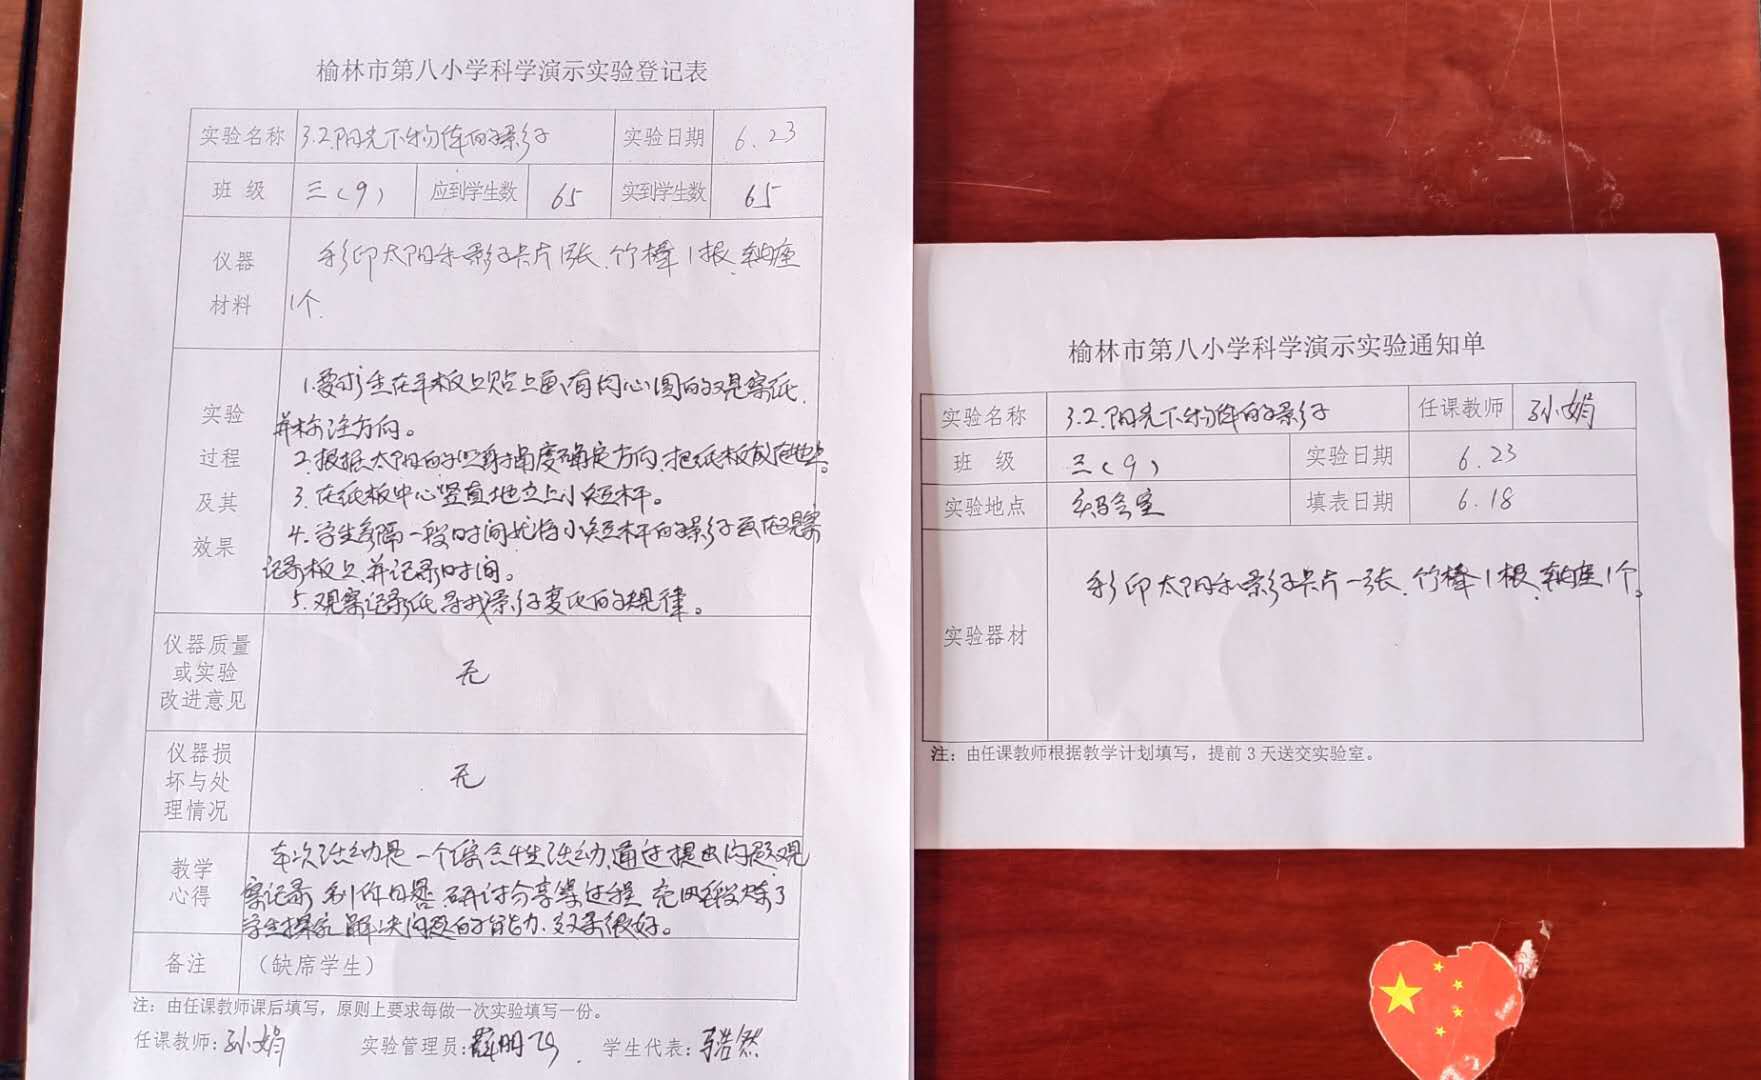 榆林市第八小学科学演示实验登记表
实验名称 3.2.阳光下物体的影子 实验日期 6.23
班 级 三(9) 应到学生数 65 实到学生数 65
仪器 彩印太阳和影子卡片1张、竹棒1根、轴座
材料 1个
1.要求生在平板上贴上画有同心圆的观察纸,
实验 并标注方向。
过程 2.根据太阳的照射角度确定方向,把纸板放在地上。
及其 3.在纸板中心竖直地立上小短杆。
效果 4.学生每隔一段时间就将小短杆的影子画在观察
记录板上,并记录时间。
5.观察记录纸寻找影子变化的规律。
仪器质量
或实验 无
改进意见
仪器损
坏与处 无
理情况
本次活动是一个综合性活动,通过提出问题观
教学 察记录 制作日晷 研讨分享等过程 充分锻炼了
心得 学生探究 解决问题的能力,效果很好。
备注 (缺席学生)
注:由任课教师课后填写,原则上要求每做一次实验填写一份。
任课教师:孙娟 实验管理员:薛明 学生代表:浩然
榆林市第八小学科学演示实验通知单
实验名称 3.2.阳光下物体的影子 任课教师 孙娟
班 级 三(9) 实验日期 6.23
实验地点 实验室 填表日期 6.18
彩印太阳和影子卡片一张、竹棒1根、轴座1个。
实验器材
注:由任课教师根据教学计划填写,提前3天送交实验室。